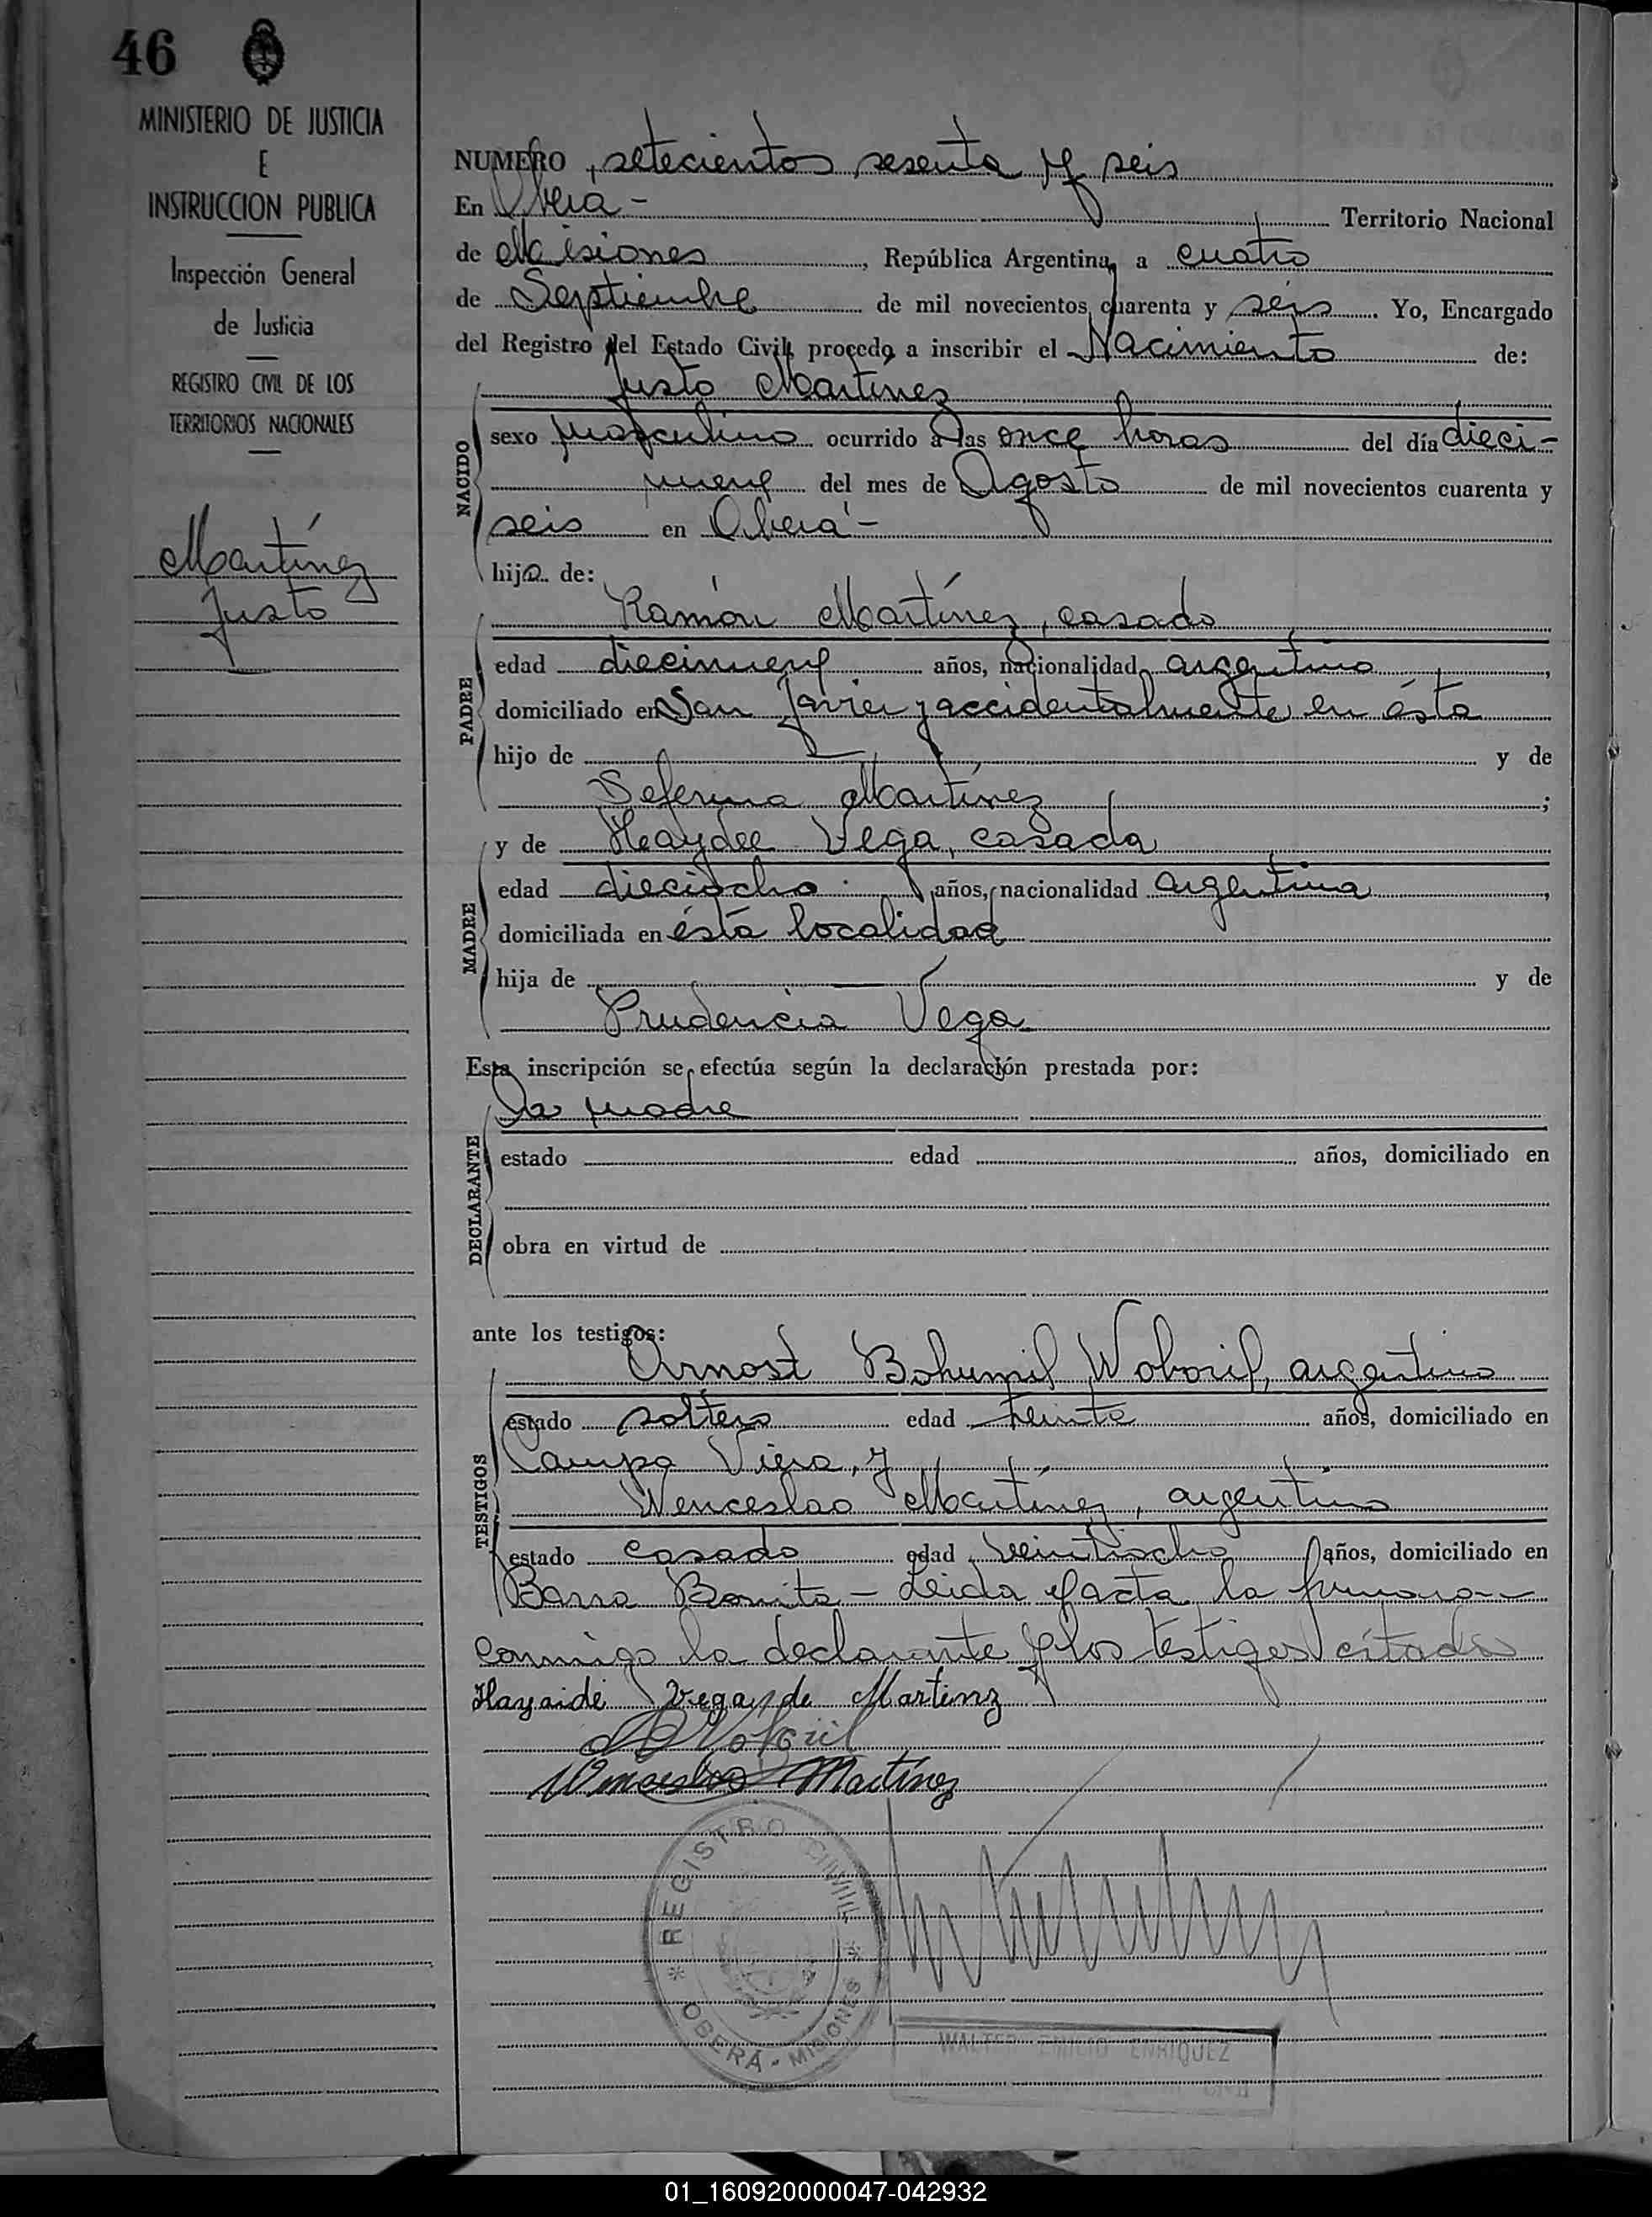 46
MINISTERIO DE JUSTICIA
E
INSTRUCCION PUBLICA
Inspección General
de Justicia
REGISTRO CIVIL DE LOS
TERRITORIOS NACIONALES
Martínez
Justo
NUMERO setecientos sesenta y seis
En Oberá - Territorio Nacional
de Misiones, República Argentina, a cuatro
de Septiembre de mil novecientos cuarenta y seis. Yo, Encargado
del Registro del Estado Civil, procedo a inscribir el Nacimiento de:
Justo Martínez
NACIDO
sexo masculino ocurrido a las once horas del día dieci-
nueve del mes de Agosto de mil novecientos cuarenta y
seis en Oberá -
hijo de:
PADRE
Ramón Martínez, casado
edad diecinueve años, nacionalidad argentino,
domiciliado en San Javier y accidentalmente en ésta
hijo de — y de
Seferina Martínez;
MADRE
y de Heaydee Vega, casada
edad dieciocho años, nacionalidad argentina,
domiciliada en ésta localidad
hija de — y de
Prudencia Vega
Esta inscripción se efectúa según la declaración prestada por:
DECLARANTE
la madre
estado edad años, domiciliado en
obra en virtud de
ante los testigos:
TESTIGOS
Arnost Bohumil Woboril, argentino
estado soltero edad treinta años, domiciliado en
Campo Viera, y
Wenceslao Martínez, argentino
estado casado edad veintiocho años, domiciliado en
Barra Bonita - Leida el acta la firmaron
conmigo la declarante y los testigos citados
Hayaidé Vega de Martinz
Woboril
Wenceslao Martínez
REGISTRO CIVIL
OBERÁ - MISIONES
WALTER EMILIO ENRIQUEZ
01_160920000047-042932